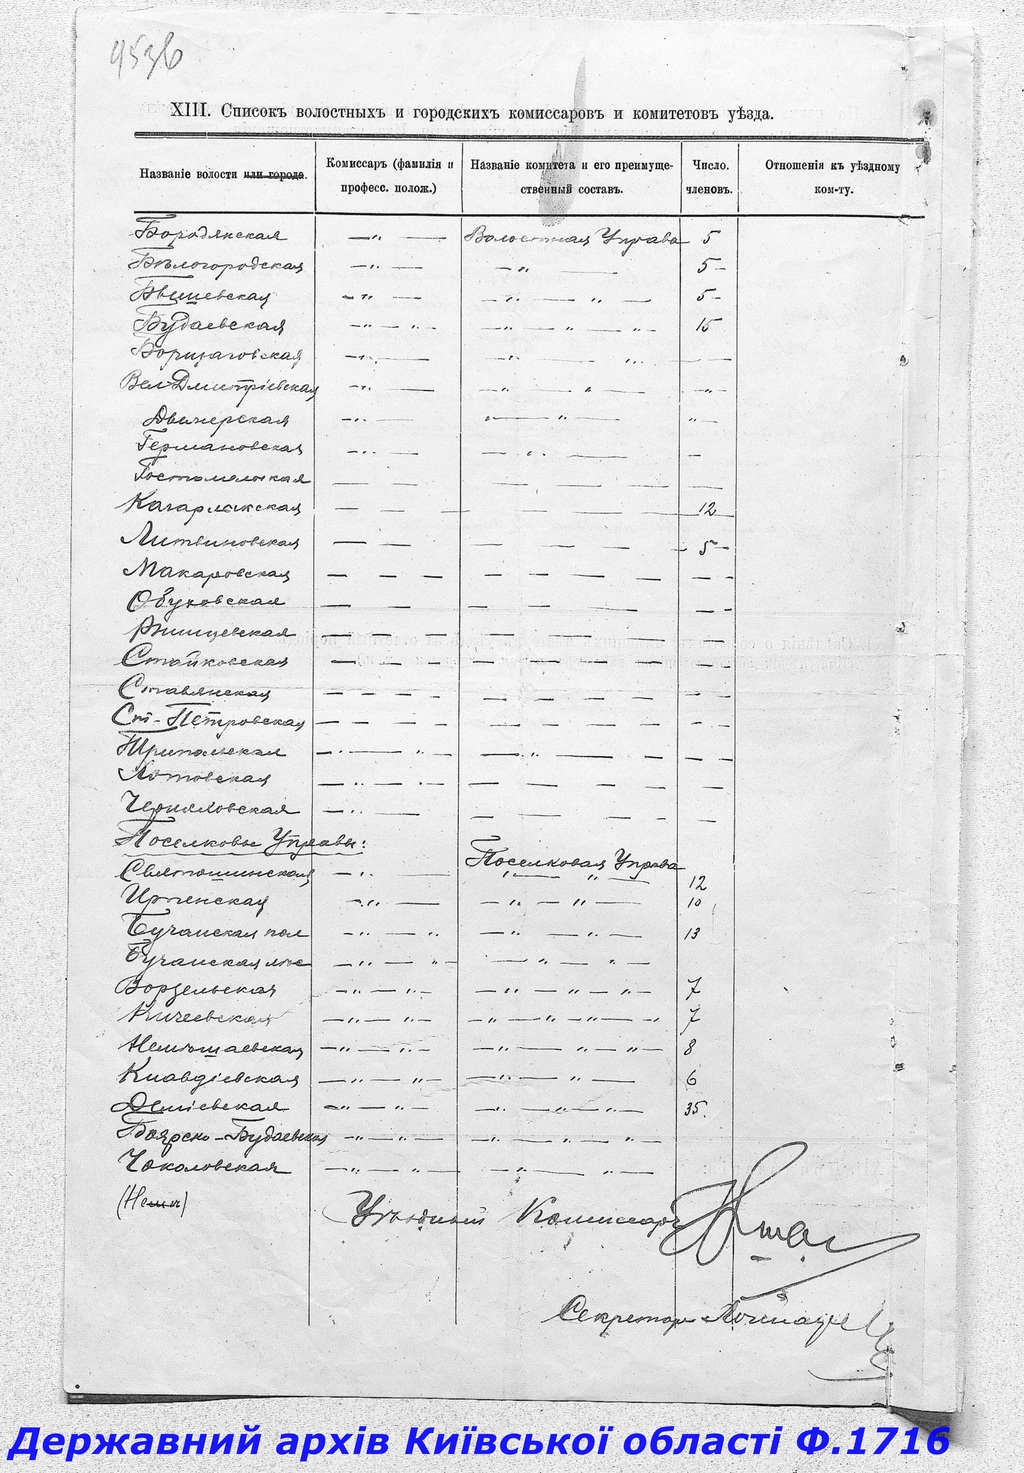 953б
XIII. Списокъ волостныхъ и городскихъ комиссаровъ и комитетовъ уѣзда.
Названіе волости или города.
Комиссаръ (фамилія и професс. полож.)
Названіе комитета и его преимущественный составъ.
Число членовъ.
Отношенія къ уѣздному ком-ту.
Бородянская —"— Волостная Управа 5
Бѣлогородская —"— —"— 5
Бышевская —"— —"—"— 5
Будаевская —"—"— —"—"—"— 15
Борщаговская —"— —"— "— —
Вел Дмитріевская —"— —"—"— —"—
Дымерская —"— "—"— "—
Германовская —"— —"— —
Гостомельская — — — — — —
Кагарлыкская — — — — — 12
Литвиновская — — — — — — - 5 -
Макаровская — — — — — — — — —
Обуховская — — — — — — — —
Ржищевская — — — — — — — —
Стайковская — — — — — — — —
Ставянская — — — — — — — —
Ст-Петровская — — — — — — — —
Трипольская —"—"— —"— — —
Хотовская —"—"— — — — —
Черняховская —"— — — — —
Поселковы Управы:
Поселковая Управа
Святошинская —"— "—"— 12
Ирпенская —"— —"—"— 10
Бучанская пол —"—"— —"—"— 13
Бучанская лѣс —"—"— —"—"—
Ворзельская —"—"— —"—"—"— 7
Кичеевская —"—"— —"—"—"—" 7
Немѣшаевская —"—"— —"—"—"— 8
Клавдіевская —"—"— —"—"— 6
Деміевская —"—"— —"—"—"— 35.
Боярско-Будаевская —"—"— —"—"—"—
Чоколовская —"—"— —"—"—
Уѣздный Комиссаръ
Секретарь
Державний архів Київської області Ф.1716